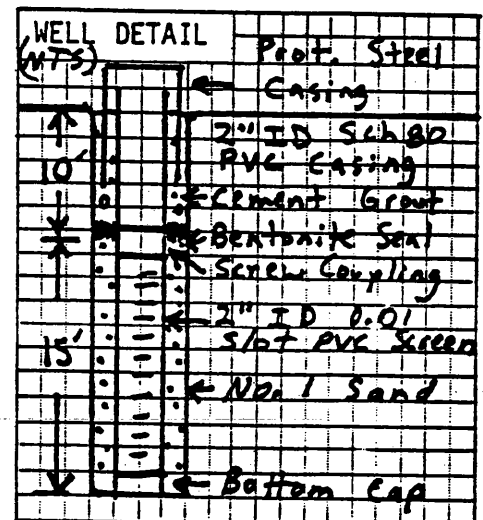 WELL DETAIL
(NTS)
Prot. Steel
Casing
2" ID Sch 80
PVC Casing
10'
Cement Grout
Bentonite Seal
Screw Coupling
2" ID 0.01
Slot PVC Screen
15'
No. 1 Sand
Bottom Cap